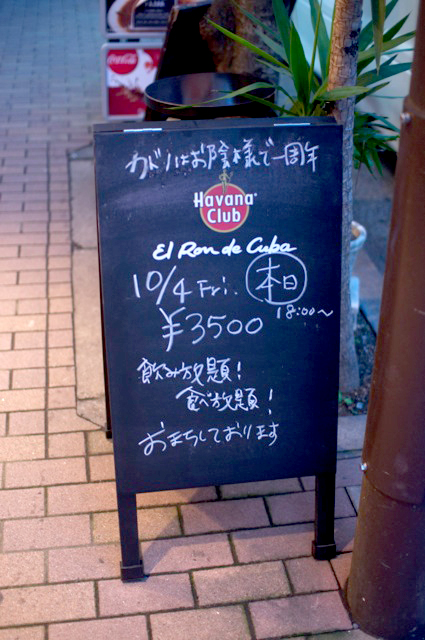 Coca-Cola
カドノはお陰様で一周年
Havana
Club
El Ron de Cuba
10/4 Fri. 本日
18:00〜
¥3500
飲み放題!
食べ放題!
おまちしております